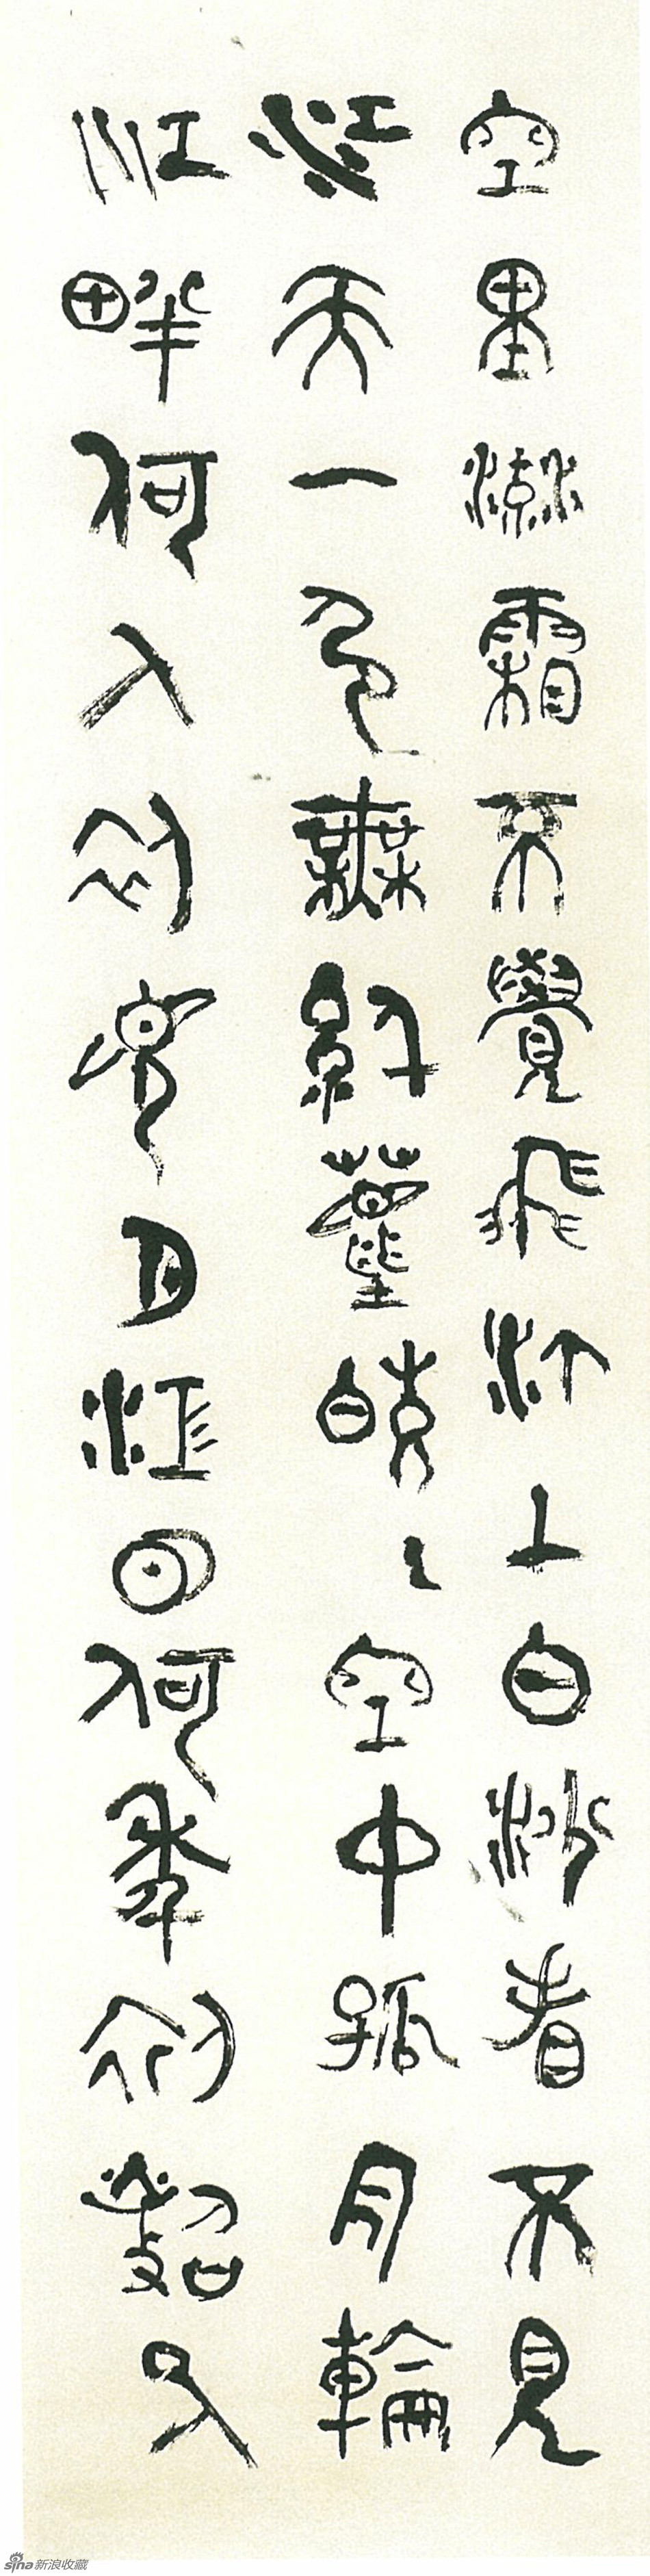 空里流霜不覺飛汀上白沙看不見
江天一色無纖塵皎〻空中孤月輪
江畔何人初見月江月何年初照人
sina新浪收藏